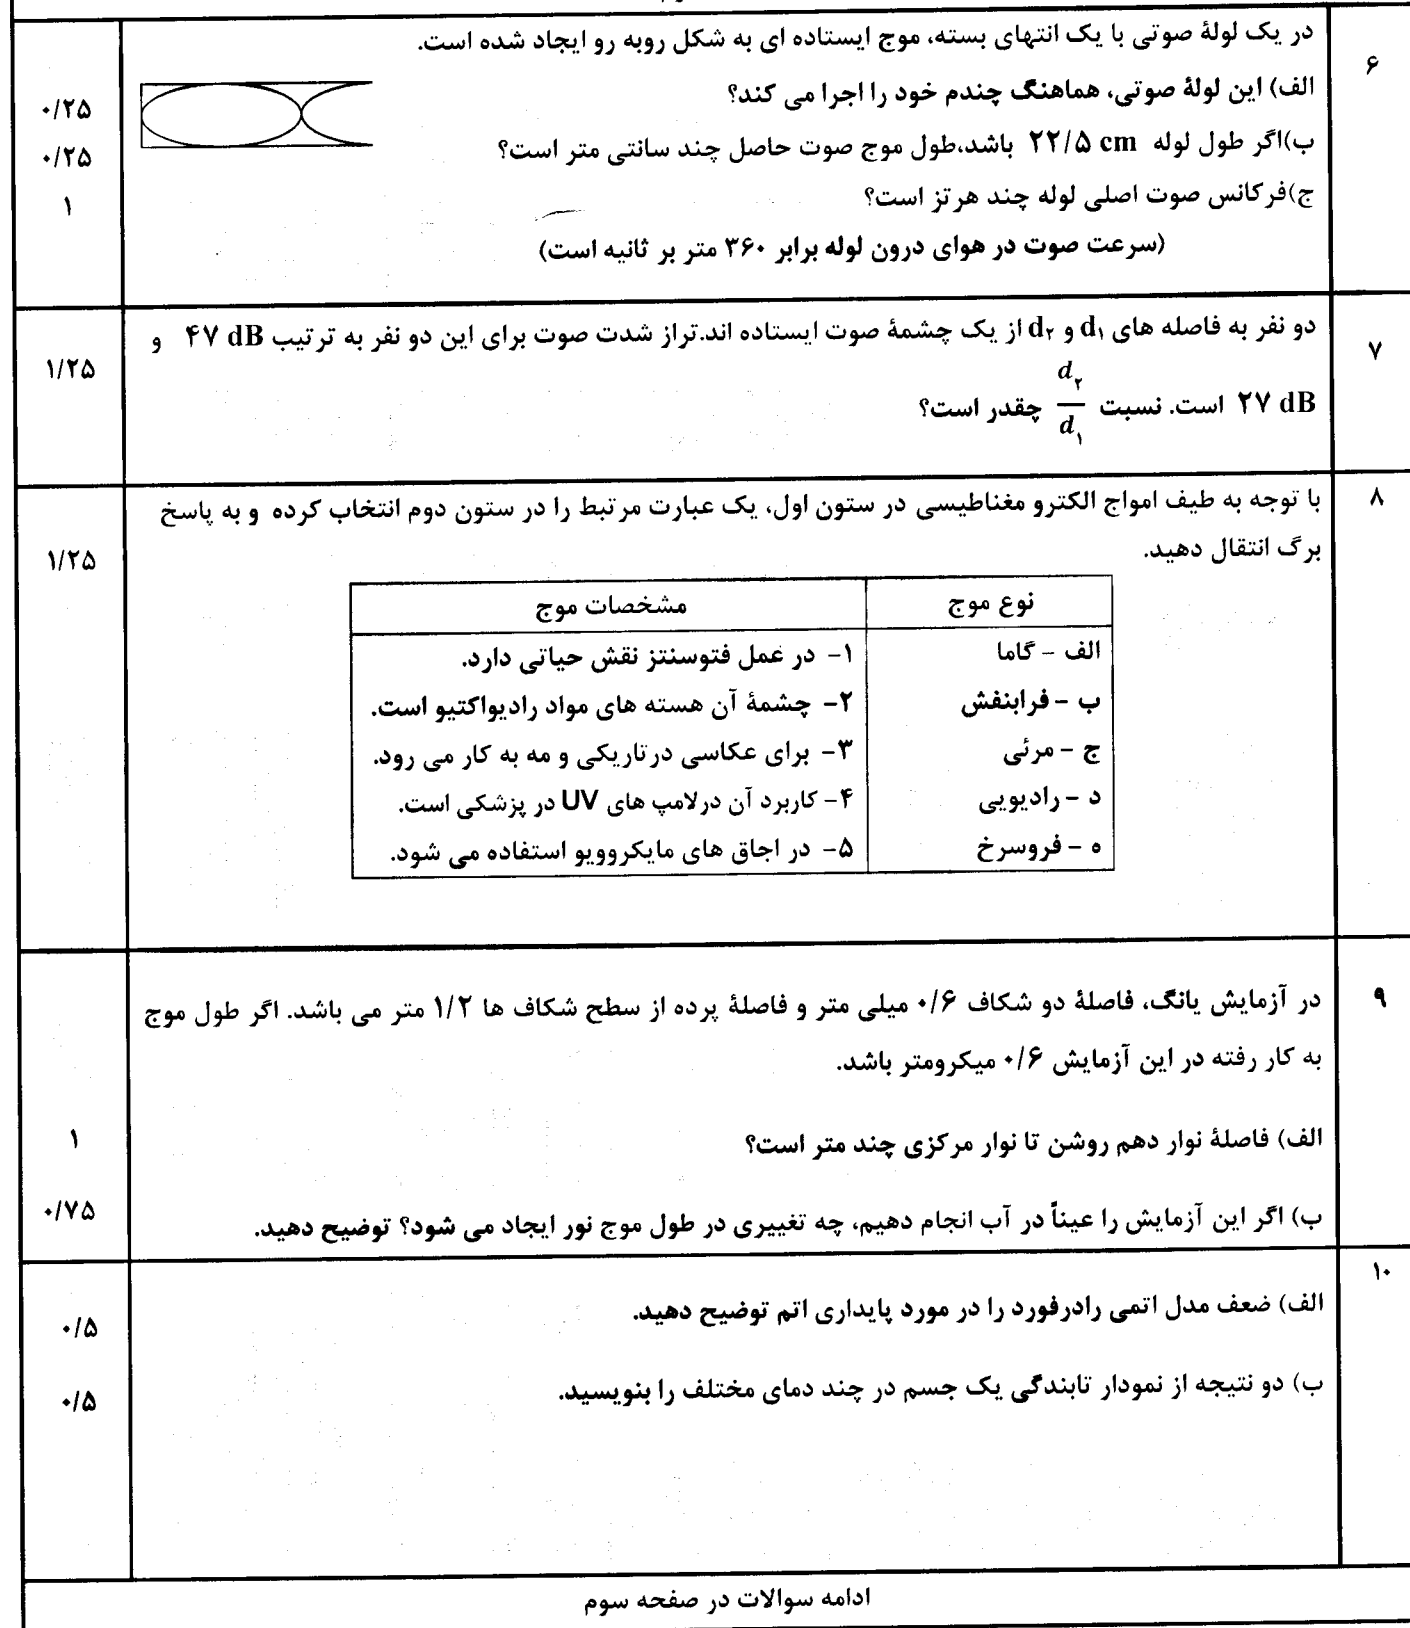 ۶
در یک لولهٔ صوتی با یک انتهای بسته، موج ایستاده ای به شکل روبه رو ایجاد شده است.
الف) این لولهٔ صوتی، هماهنگ چندم خود را اجرا می کند؟
۰/۲۵
ب)اگر طول لوله ۲۲/۵ cm باشد،طول موج صوت حاصل چند سانتی متر است؟
۰/۲۵
ج)فرکانس صوت اصلی لوله چند هرتز است؟
۱
(سرعت صوت در هوای درون لوله برابر ۳۶۰ متر بر ثانیه است)
۷
دو نفر به فاصله های d₁ و d₂ از یک چشمهٔ صوت ایستاده اند.تراز شدت صوت برای این دو نفر به ترتیب ۴۷ dB و
۱/۲۵
۲۷ dB است. نسبت d₂/d₁ چقدر است؟
۸
با توجه به طیف امواج الکترو مغناطیسی در ستون اول، یک عبارت مرتبط را در ستون دوم انتخاب کرده و به پاسخ
برگ انتقال دهید.
۱/۲۵
نوع موج مشخصات موج
الف – گاما ۱– در عمل فتوسنتز نقش حیاتی دارد.
ب – فرابنفش ۲– چشمهٔ آن هسته های مواد رادیواکتیو است.
ج – مرئی ۳– برای عکاسی درتاریکی و مه به کار می رود.
د – رادیویی ۴– کاربرد آن درلامپ های UV در پزشکی است.
ه – فروسرخ ۵– در اجاق های مایکروویو استفاده می شود.
۹
در آزمایش یانگ، فاصلهٔ دو شکاف ۰/۶ میلی متر و فاصلهٔ پرده از سطح شکاف ها ۱/۲ متر می باشد. اگر طول موج
به کار رفته در این آزمایش ۰/۶ میکرومتر باشد.
الف) فاصلهٔ نوار دهم روشن تا نوار مرکزی چند متر است؟
۱
ب) اگر این آزمایش را عیناً در آب انجام دهیم، چه تغییری در طول موج نور ایجاد می شود؟ توضیح دهید.
۰/۷۵
۱۰
الف) ضعف مدل اتمی رادرفورد را در مورد پایداری اتم توضیح دهید.
۰/۵
ب) دو نتیجه از نمودار تابندگی یک جسم در چند دمای مختلف را بنویسید.
۰/۵
ادامه سوالات در صفحه سوم